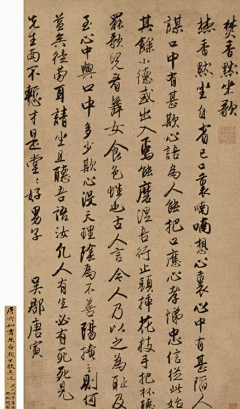 焚香默坐歌
焚香默坐自省己口裏喃喃想心裏心中有甚陷人
謀口中有甚欺心語為人能把口應心孝悌忠信從此始
其餘小德或出入焉能磨湼吾行止頭插花枝手把杯聽
罷歌兒看舞女食色性也古人言今人乃以之為恥及
至心中與口中多少欺心沒天理陰為不善陽掩之則何
益矣徒勞耳請坐且聽吾語汝凡人有生必有死死見
先生面不慙才是堂堂好男子 吳郡唐寅
唐六如書焚香默坐歌